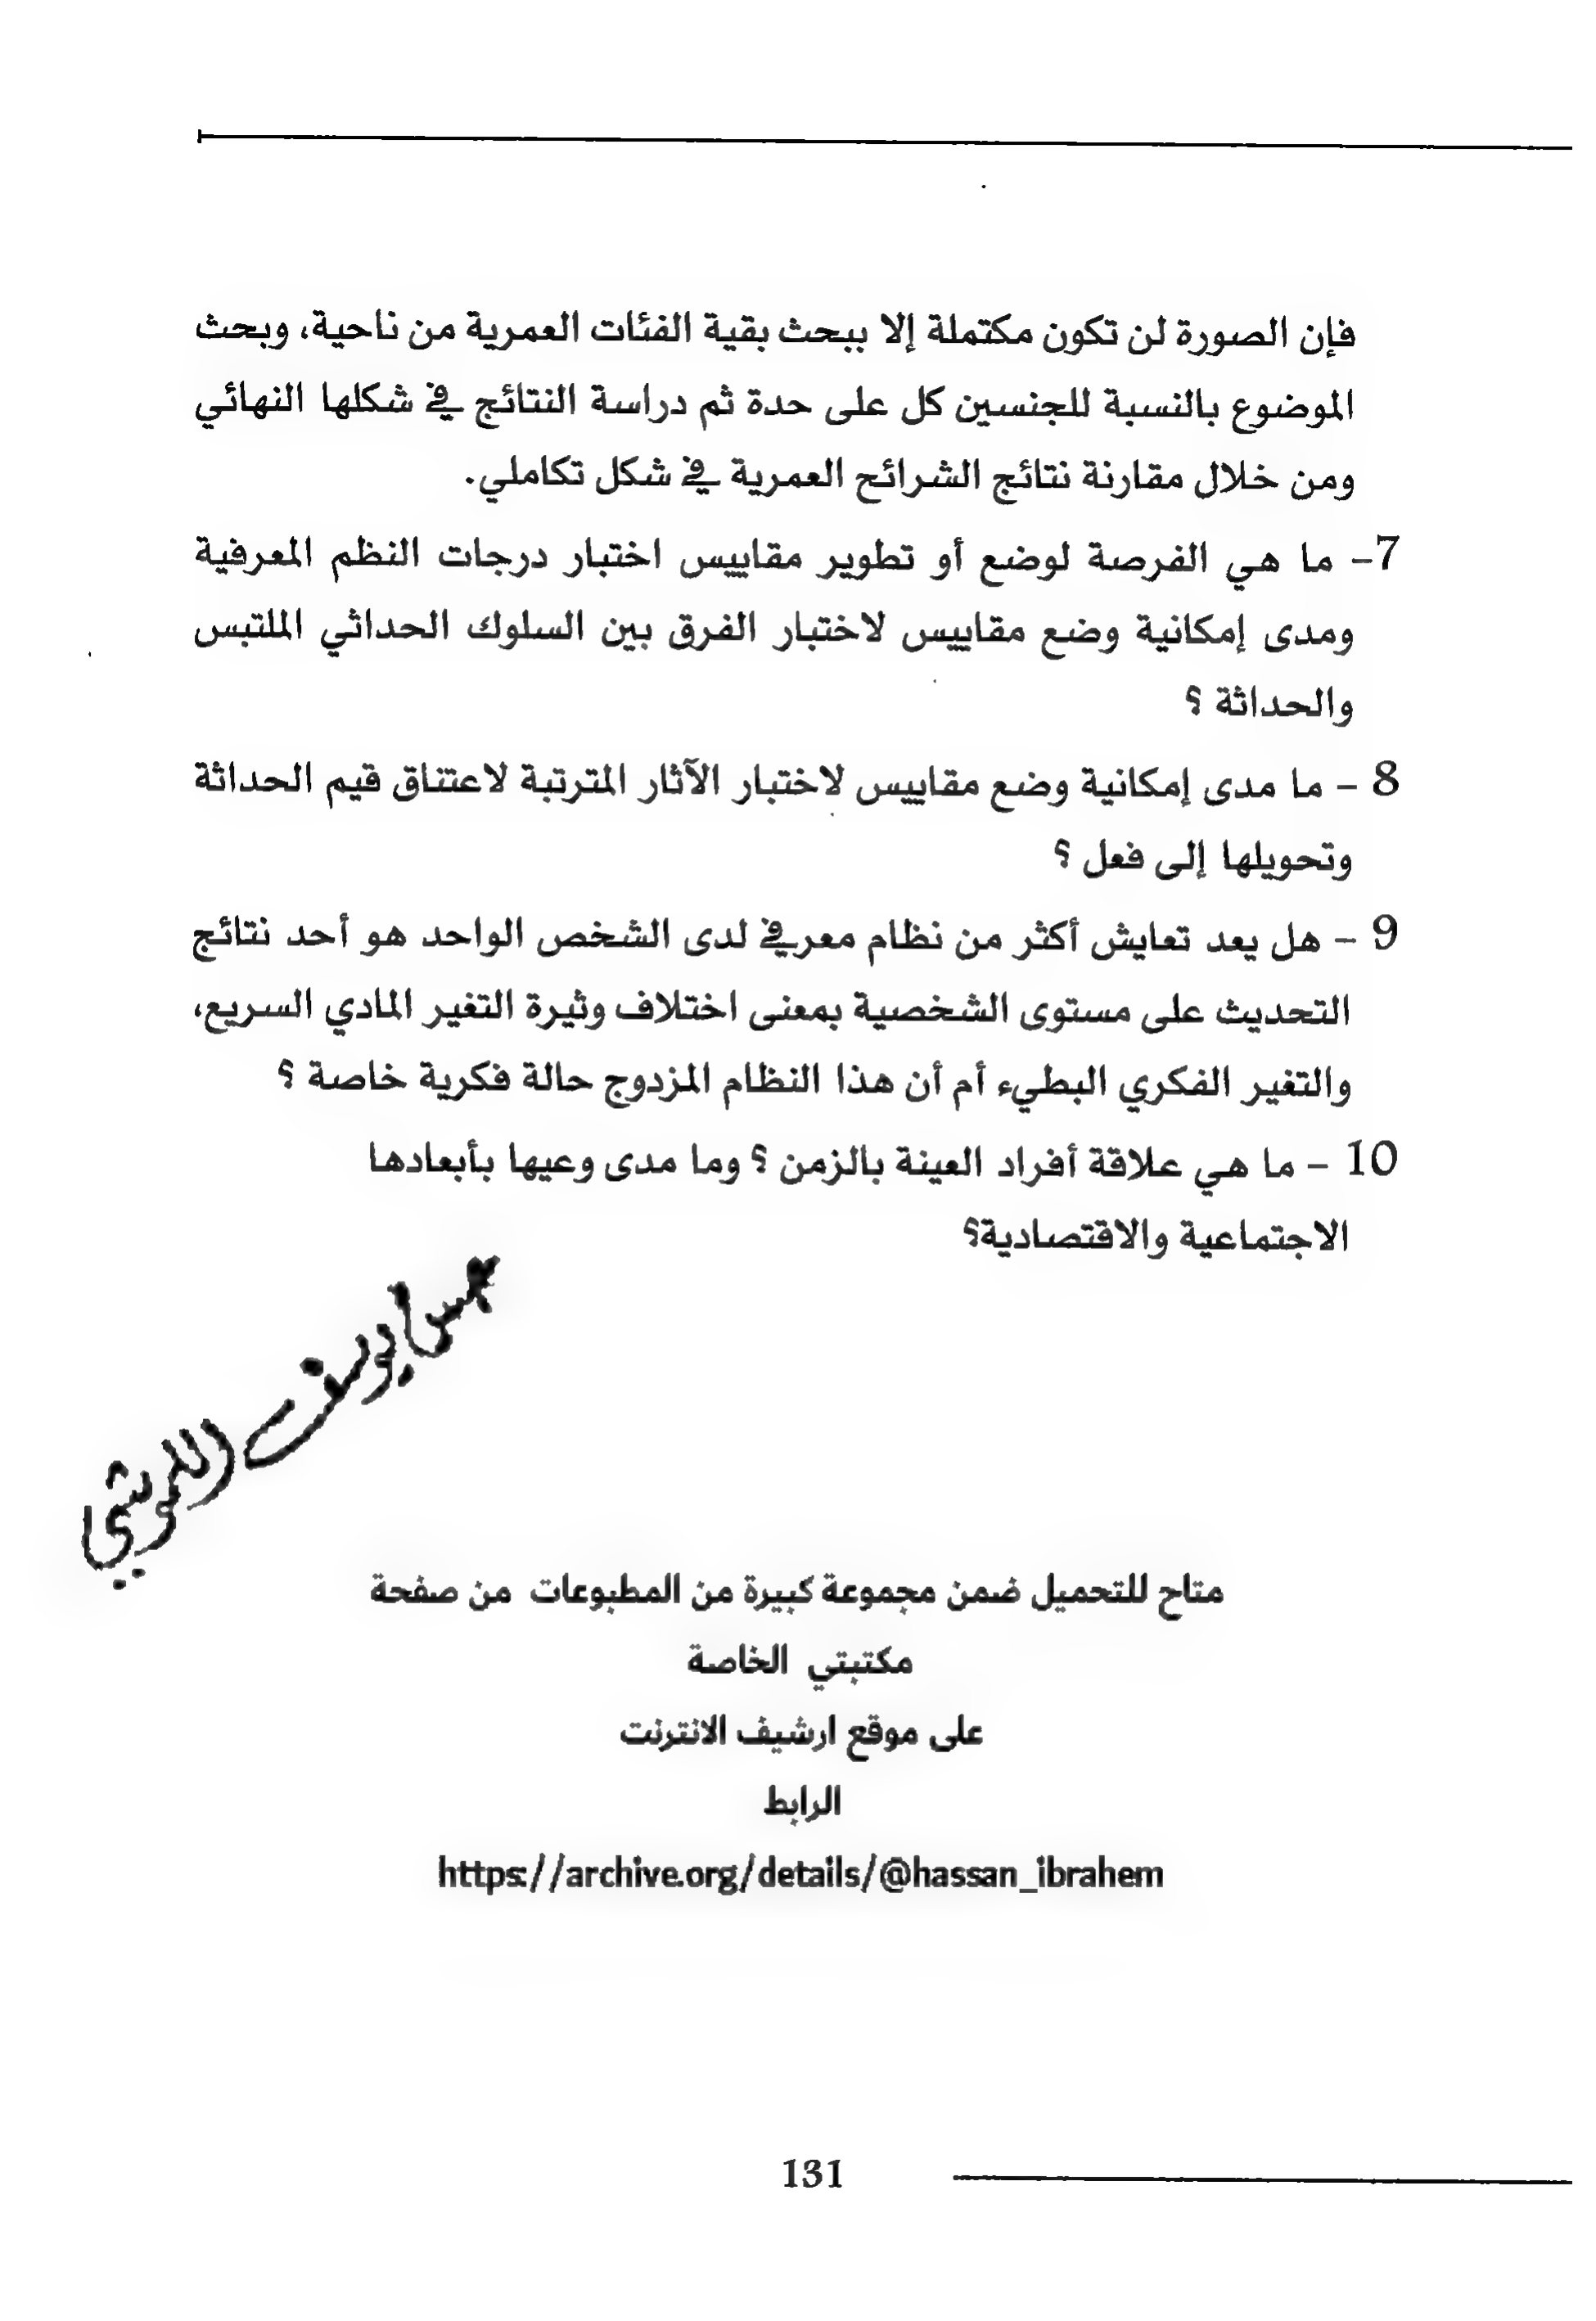 فإن الصورة لن تكون مكتملة إلا ببحث بقية الفئات العمرية من ناحية، وبحث
الموضوع بالنسبة للجنسين كل على حدة ثم دراسة النتائج في شكلها النهائي
ومن خلال مقارنة نتائج الشرائح العمرية في شكل تكاملي.
7- ما هي الفرصة لوضع أو تطوير مقاييس اختبار درجات النظم المعرفية
ومدى إمكانية وضع مقاييس لاختبار الفرق بين السلوك الحداثي الملتبس
والحداثة ؟
8 - ما مدى إمكانية وضع مقاييس لاختبار الآثار المترتبة لاعتناق قيم الحداثة
وتحويلها إلى فعل ؟
9 - هل يعد تعايش أكثر من نظام معرفي لدى الشخص الواحد هو أحد نتائج
التحديث على مستوى الشخصية بمعنى اختلاف وثيرة التغير المادي السريع،
والتغير الفكري البطيء أم أن هذا النظام المزدوج حالة فكرية خاصة ؟
10 - ما هي علاقة أفراد العينة بالزمن ؟ وما مدى وعيها بأبعادها
الاجتماعية والاقتصادية؟
يوسف
متاح للتحميل ضمن مجموعة كبيرة من المطبوعات من صفحة
مكتبتي الخاصة
على موقع ارشيف الانترنت
الرابط
https://archive.org/details/@hassan_ibrahem
131